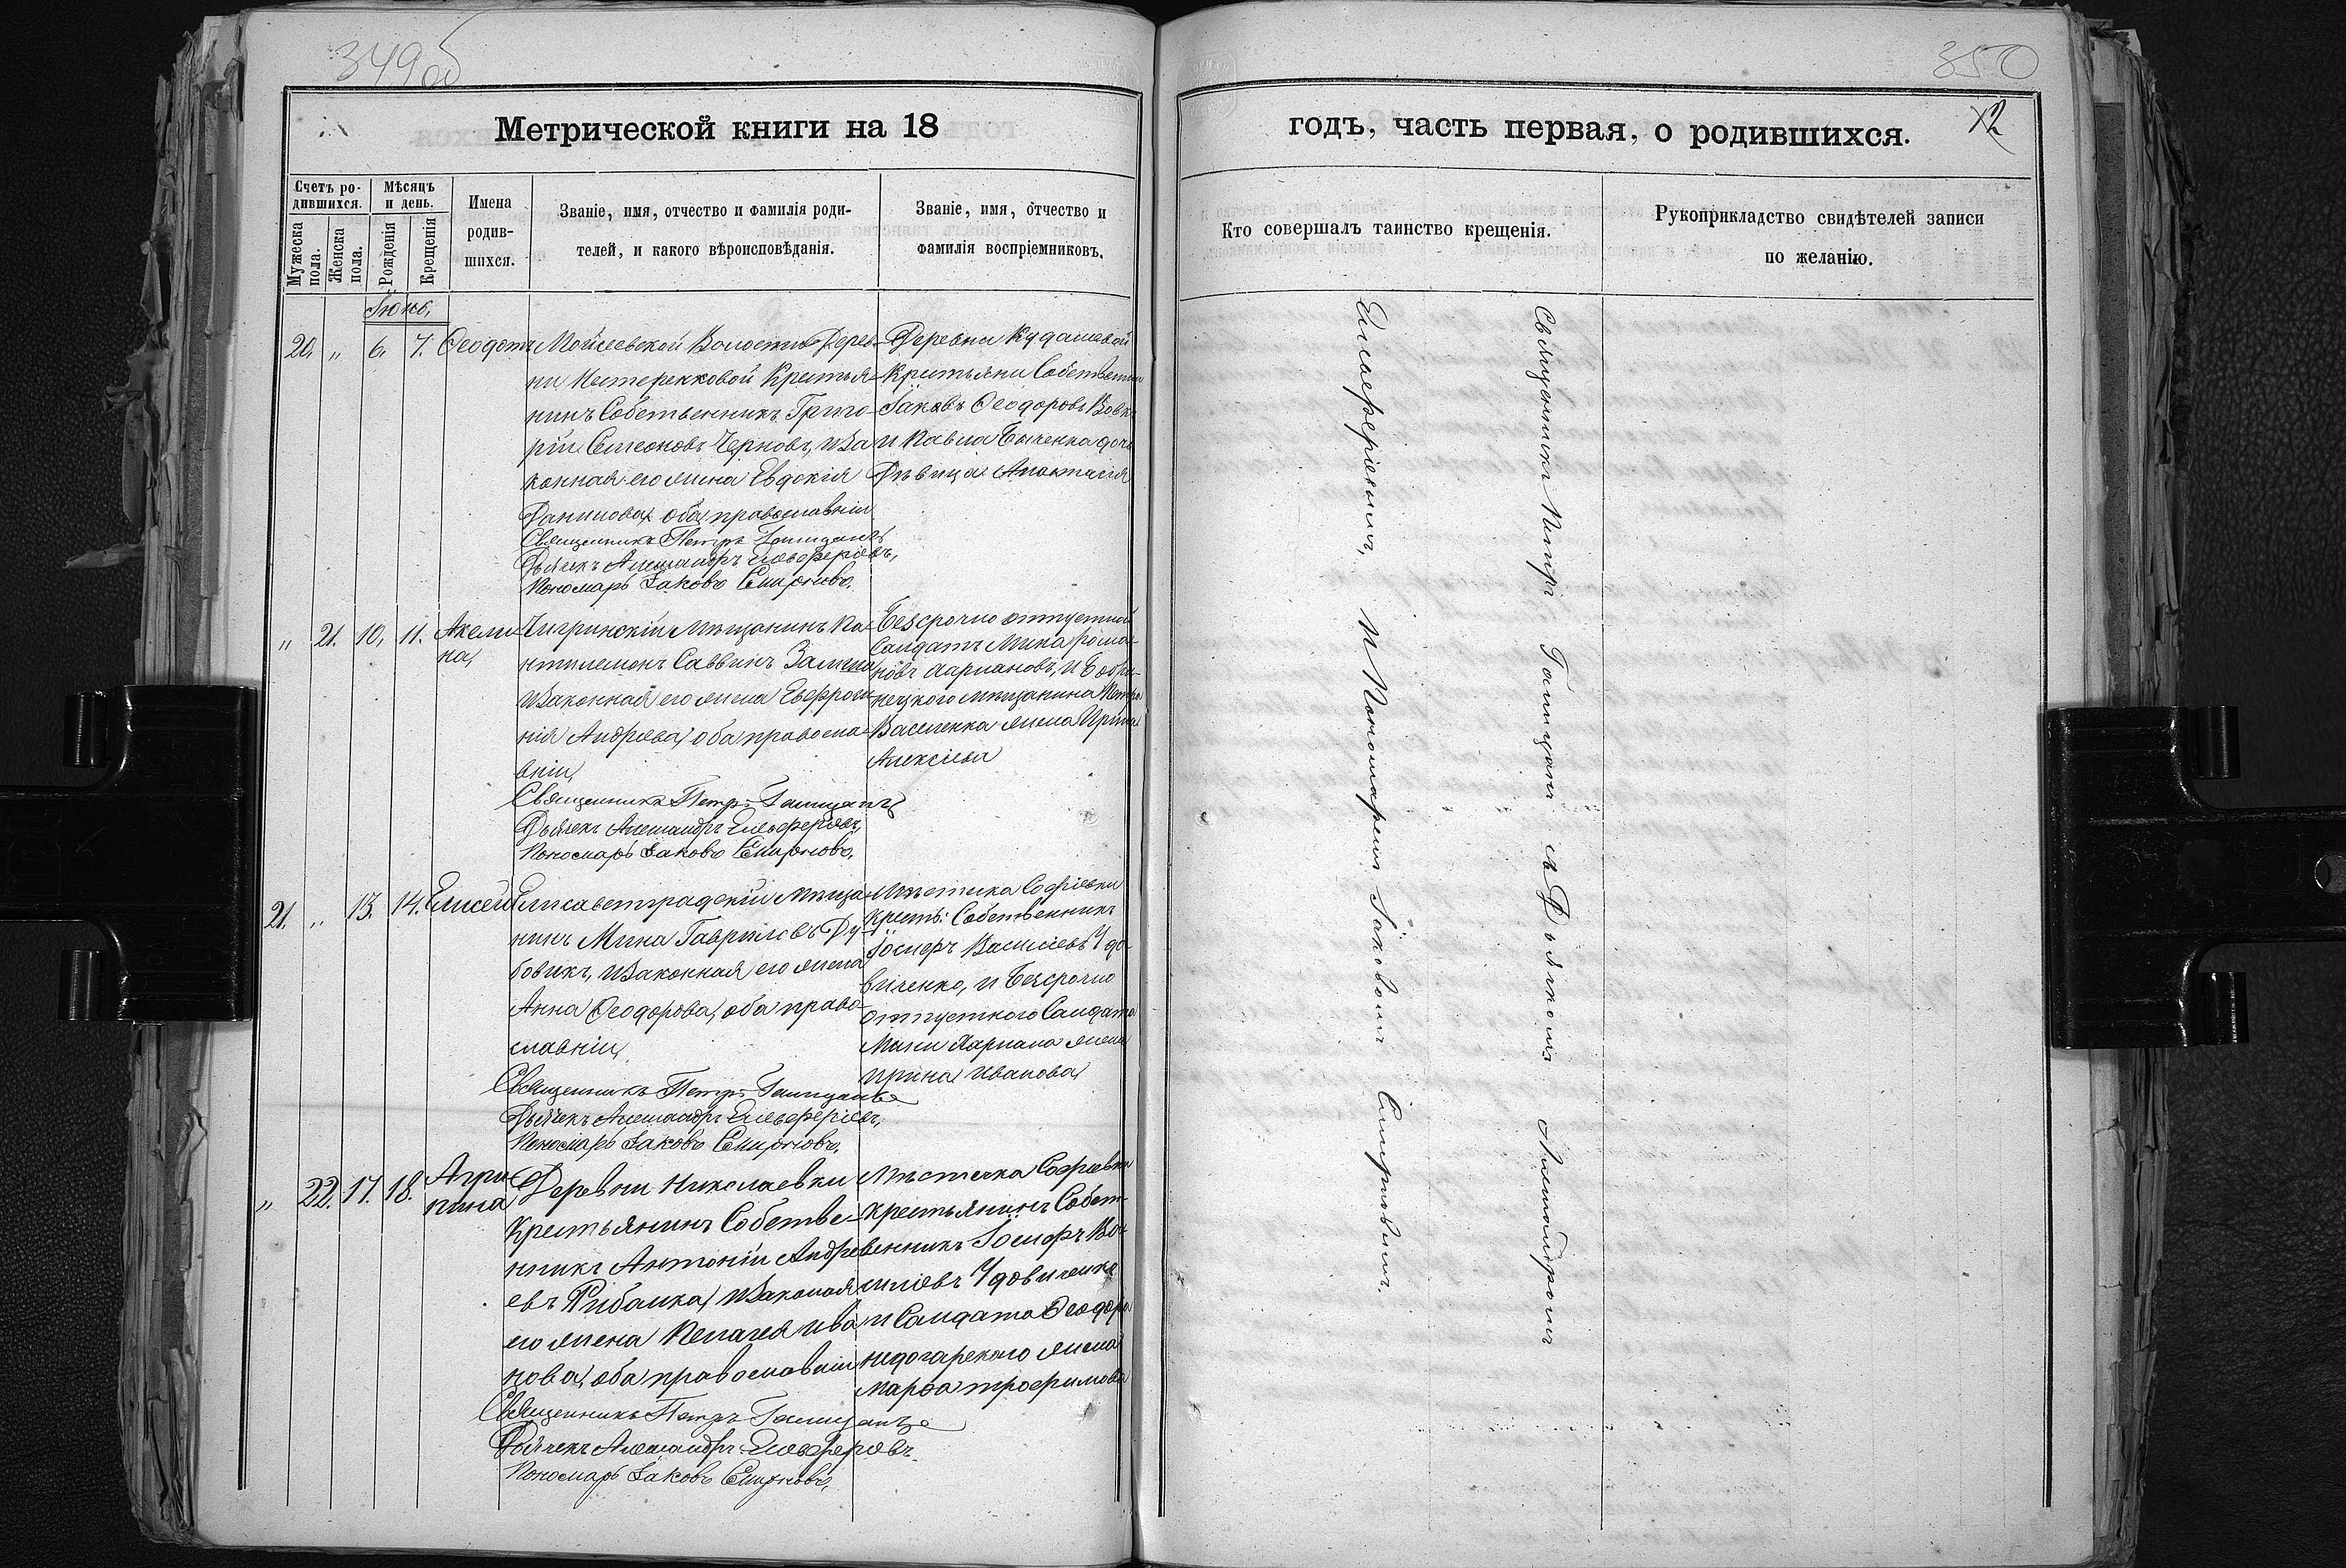 349 об
350
12
Метрической книги на 18
годъ, часть первая, о родившихся.
Счетъ родившихся.
Мѣсяцъ и день.
Мужеска пола.
Женска пола.
Рожденія
Крещенія
Имена родившихся.
Званіе, имя, отчество и фамилія родителей, и какого вѣроисповѣданія.
Званіе, имя, отчество и фамилія воспріемниковъ.
Кто совершалъ таинство крещенія.
Рукоприкладство свидѣтелей записи
по желанію.
Іюнь,
20, „ 6, 7. Ѳеодотъ
Мойсеевской Волости Дерев-
ни Нестеренковой Крестья-
нинъ Собственникъ Григо-
рій Симеоновъ Черновъ, и За-
конная его жена Евдокія
Данилова, оба православніи
Священникъ Петръ
Дьячекъ Александръ Елевферіевъ,
Пономарь Іаковъ Смирновъ.
Деревни Кудашевой
Крестьянинъ Собственни
Іаковъ Ѳеодоровъ Вовк
и Павла Быченка дочь
Дѣвица Анастасія
„ 21. 10, 11. Акели-
на,
Чигринскій Мѣщанинъ Па-
нтилемонъ Саввинъ
и Законная его жена Евфроси-
нія Андреева, оба правосла-
вніи,
Священникъ Петръ
Дьячекъ Александръ Елевферіевъ,
Пономарь Іаковъ Смирновъ,
Безсрочно отпустной
Солдатъ Мина Рома-
новъ и Бобри-
нецкого мѣщанина Петра
Василенка жена Ирина
Алексіева
21. „ 13. 14. Елисей
Елисаветградскій Мѣща-
нинъ Мина Гавриловъ Ду-
бовикъ, и Законная его жена
Анна Ѳеодорова, оба право-
славніи,
Священникъ Петръ
Дьячекъ Александръ Елевферіевъ,
Пономарь Іаковъ Смирновъ,
Мѣстечка Софіевки
Крест: Собственникъ
Іосифъ Василіевъ Удо-
виченко, и Безсрочно
отпустного Солдата
Мины жена
Ирина Иванова,
„ 22. 17. 18. Агри-
пина
Деревни Николаевки
Крестьянинъ Собстве-
нникъ Антоній Андре-
евъ Рибалка, и Законая
его жена Пелагея Ива-
нова, оба православніи
Священникъ Петръ
Дьячекъ Александръ Елевферіевъ
Пономарь Іаковъ Смирновъ,
Мѣстечка Софіевки
Крестьянинъ Собст-
венникъ Іосифъ Ва-
силіевъ Удовиченко
и Солдата Ѳеодора
жена
Марѳа Трофимова
Священникъ Петръ съ Дьячкомъ Александромъ
Елевферіевымъ, и Пономаремъ Іаковомъ Смирновымъ.